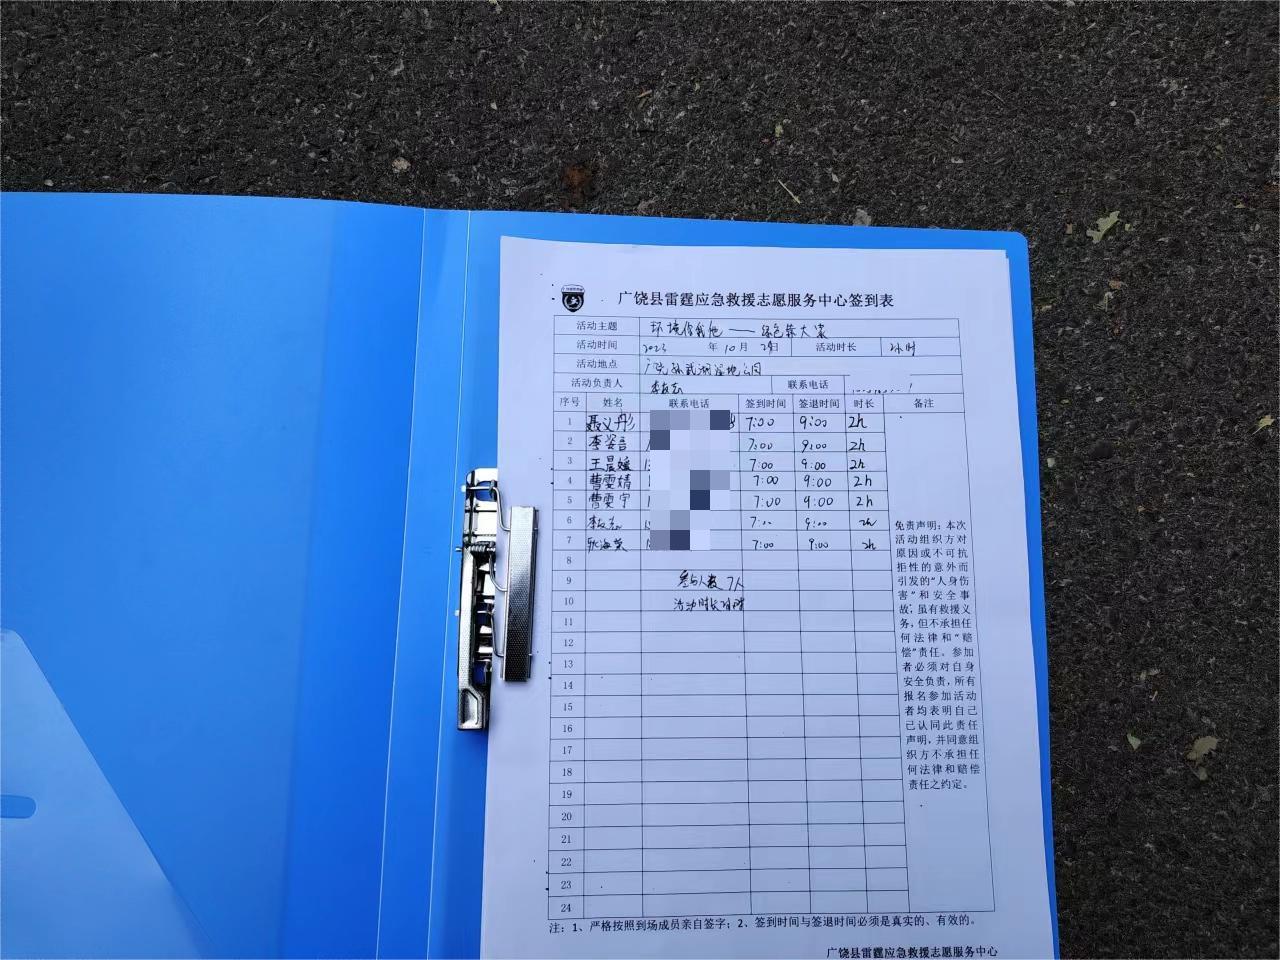 广饶县雷霆应急救援志愿服务中心签到表
活动主题 环境信我他——绿色靠大家
活动时间 2023 年 10 月 29日 活动时长 2小时
活动地点 广饶孙武湖湿地公园
活动负责人 联系电话
序号 姓名 联系电话 签到时间 签退时间 时长 备注
1 聂义彤 7:00 9:00 2h
2 李姿言 7:00 9:00 2h
3 王晨媛 7:00 9:00 2h
4 曹雯婧 7:00 9:00 2h
5 曹雯宁 7:00 9:00 2h
6 7:00 9:00 2h
7 张海荣 7:00 9:00 2h
8
9 参与人数 7人
10 活动时长
11
12
13
14
15
16
17
18
19
20
21
22
23
24
免责声明：本次
活动组织方对
原因或不可抗
拒性的意外而
引发的“人身伤
害”和安全事
故，虽有救援义
务，但不承担任
何法律和“赔
偿”责任。参加
者必须对自身
安全负责，所有
报名参加活动
者均表明自己
已认同此责任
声明，并同意组
织方不承担任
何法律和赔偿
责任之约定。
注：1、严格按照到场成员亲自签字；2、签到时间与签退时间必须是真实的、有效的。
广饶县雷霆应急救援志愿服务中心